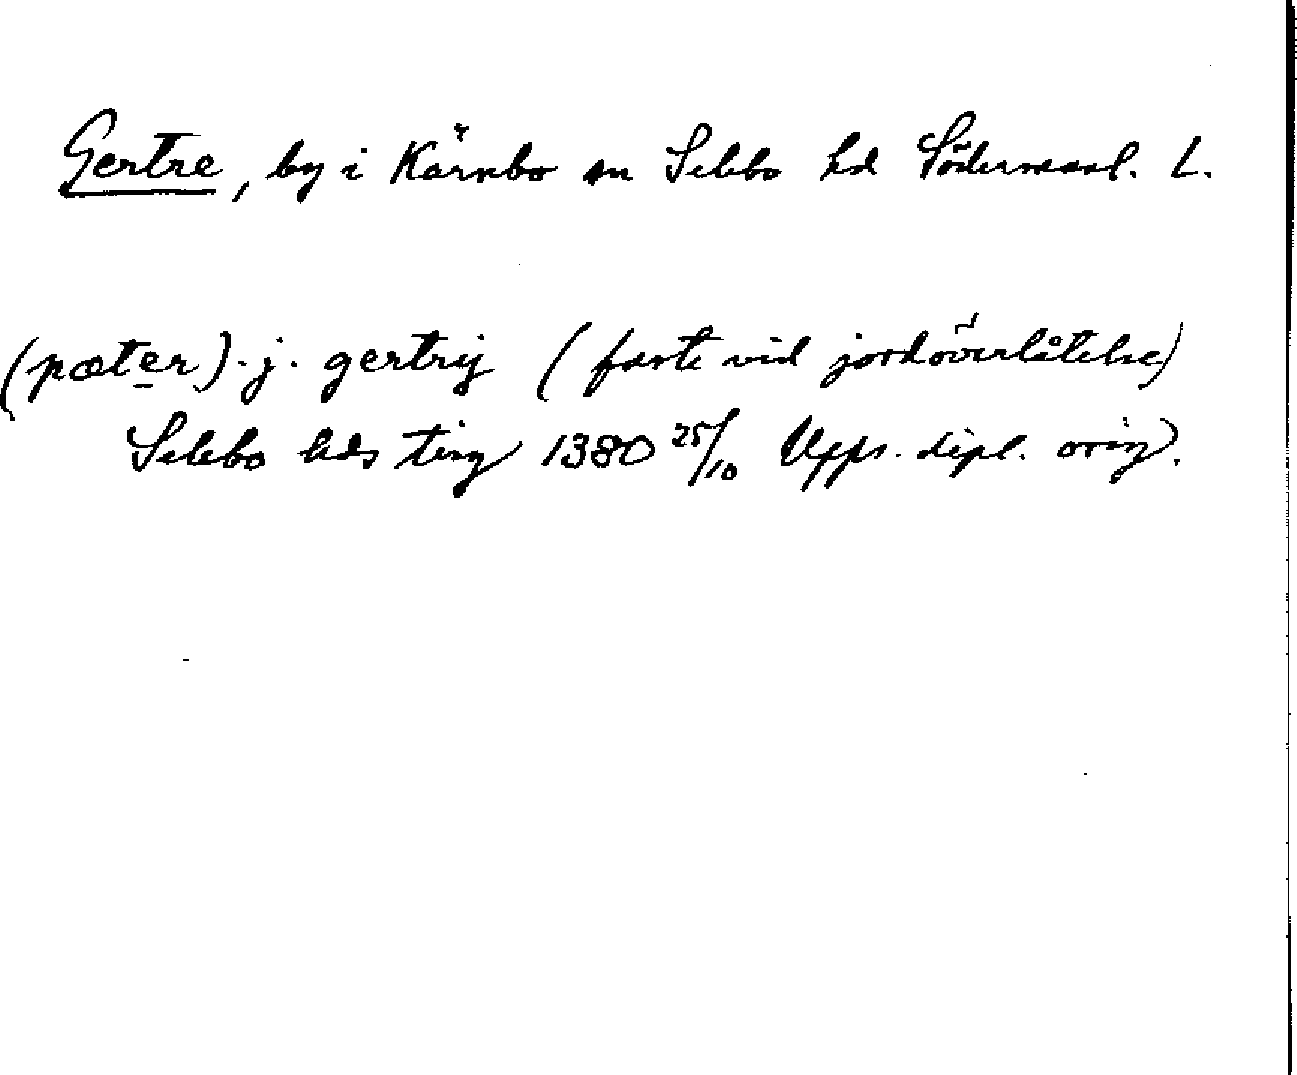 Gertre, by i Kärnbo sn Selebo hd Södermanl. L.
(pæter).j. gertrij (faste vid jordöverlåtelse)
Selebo hds ting 1380 25/10 Upps. dipl. orig.